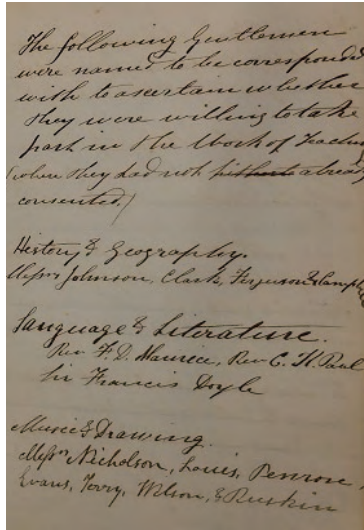 The following Gentlemen
were named to be corresponded
with to ascertain whether
they were willing to take
part in the Work of Teachin
(where they had not hitherto already
consented.)
History & Geography.
Messrs Johnson, Clark, Ferguson & Campb
Language & Literature.
Rev F. D. Maurice, Rev C. K. Paul
Sir Francis Doyle
Music & Drawing.
Messrs Nicholson, Louis, Penrose,
Evans, Terry, Wilson, & Ruskin